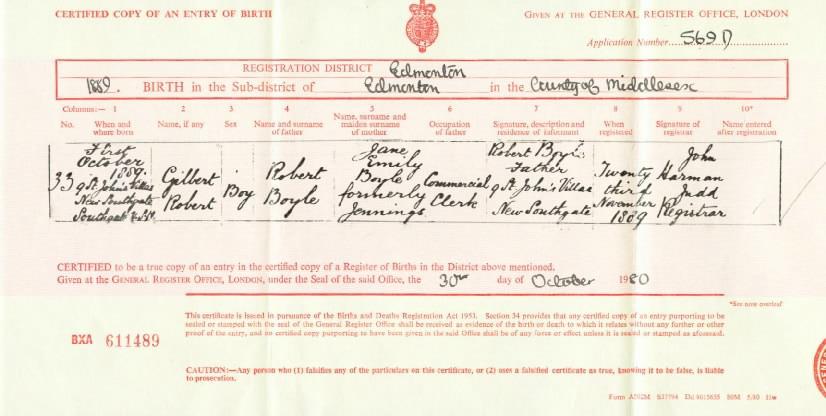 CERTIFIED COPY OF AN ENTRY OF BIRTH
GIVEN AT THE GENERAL REGISTER OFFICE, LONDON
Application Number 569D
REGISTRATION DISTRICT Edmonton
1889. BIRTH in the Sub-district of Edmonton in the County of Middlesex
Columns:— 1 2 3 4 5 6 7 8 9 10*
No. When and where born Name, if any Sex Name and surname of father Name, surname and maiden surname of mother Occupation of father Signature, description and residence of informant When registered Signature of registrar Name entered after registration
33
First
October
1889.
9 St. John's Villas
New Southgate
Southgate
Gilbert
Robert
Boy
Robert
Boyle
Jane
Emily
Boyle
formerly
Jennings
Commercial
Clerk
Robert Boyle
Father
9 St. John's Villas
New Southgate
Twenty
third
November
1889
John
Harman
Judd
Registrar
CERTIFIED to be a true copy of an entry in the certified copy of a Register of Births in the District above mentioned.
Given at the GENERAL REGISTER OFFICE, LONDON, under the Seal of the said Office, the 30th day of October 1980
*See note overleaf
This certificate is issued in pursuance of the Births and Deaths Registration Act 1953. Section 34 provides that any certified copy of an entry purporting to be
sealed or stamped with the seal of the General Register Office shall be received as evidence of the birth or death to which it relates without any further or other
proof of the entry, and no certified copy purporting to have been given in the said Office shall be of any force or effect unless it is sealed or stamped as aforesaid.
BXA 611489
CAUTION:—Any person who (1) falsifies any of the particulars on this certificate, or (2) uses a falsified certificate as true, knowing it to be false, is liable
to prosecution.